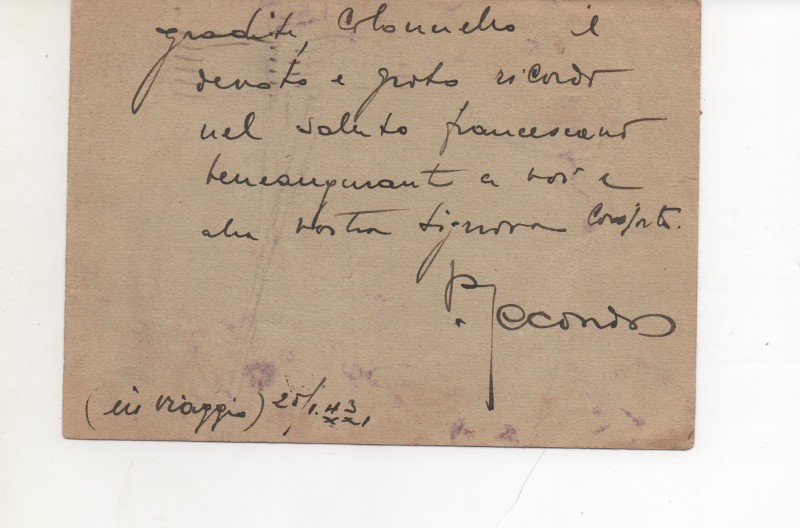 gradite, Colonnello il
devoto e grato ricordo
nel saluto francescano
beneaugurante a voi e
alla vostra Signora Consorte.
P.
(in viaggio) 25/1.43
XXI